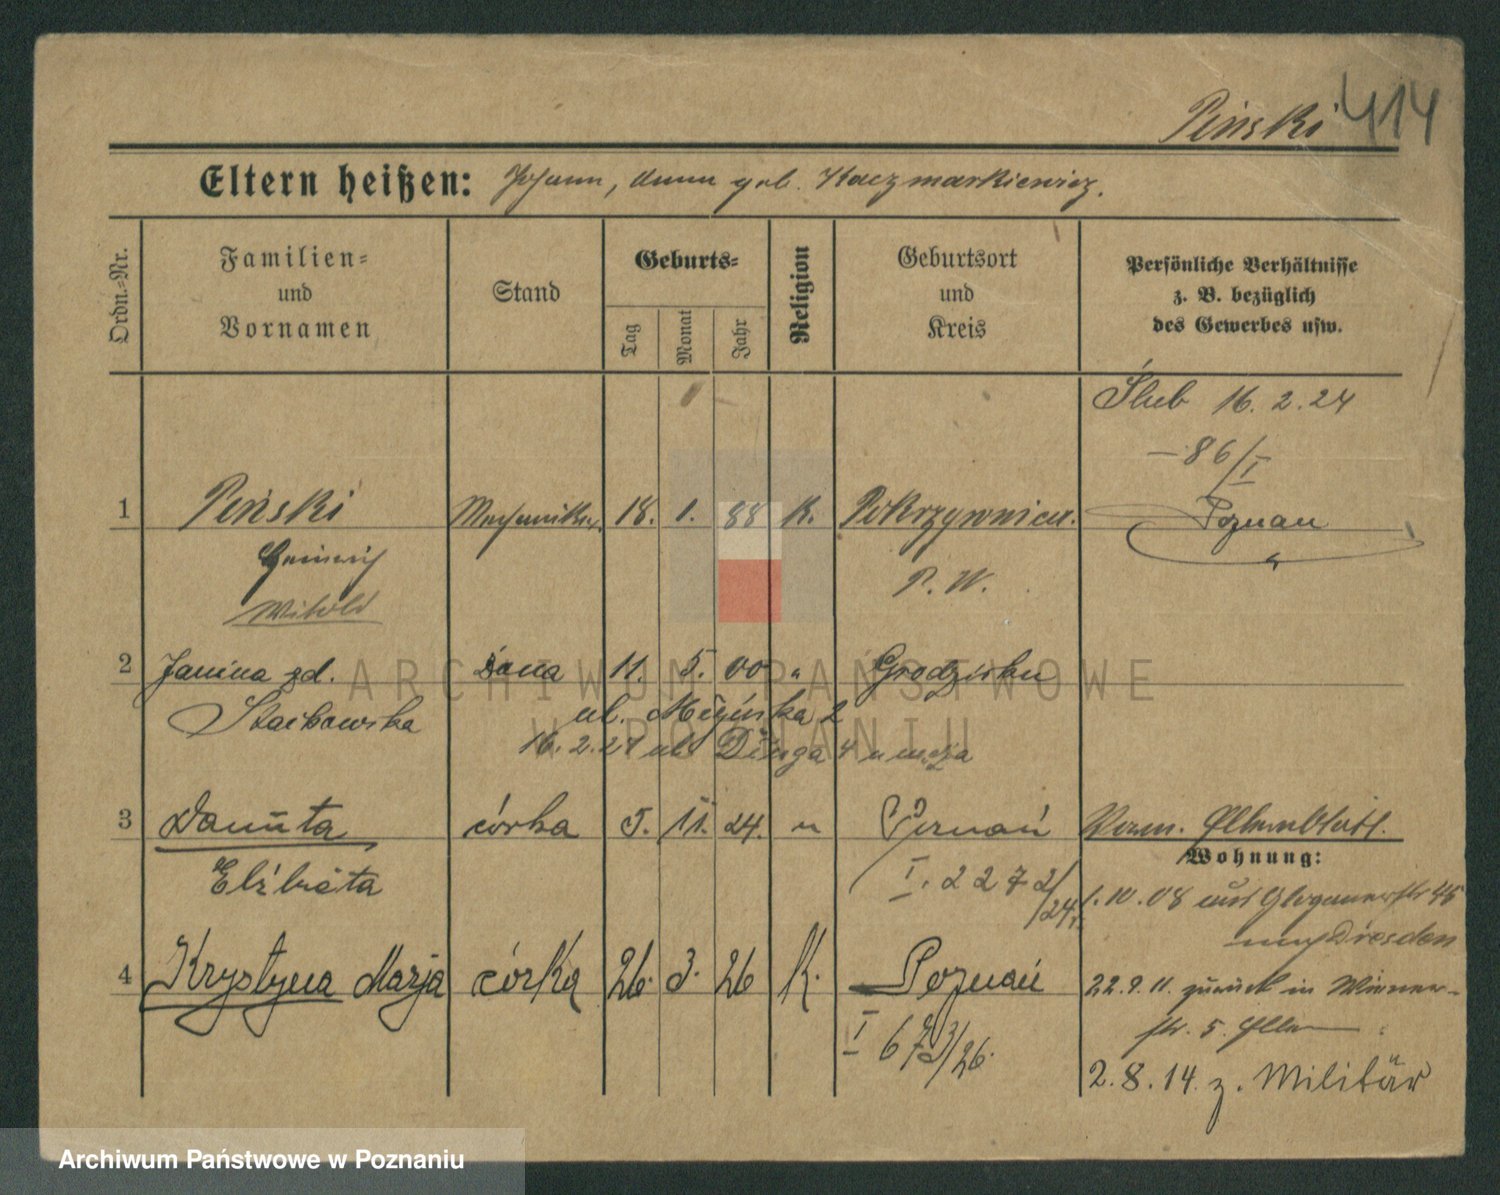 Peński 414
Eltern heißen: Johann, Anna geb. Kaczmarkiewicz.
Ordn.=Nr.
Familien=
und
Vornamen
Stand
Geburts=
Tag
Monat
Jahr
Religion
Geburtsort
und
Kreis
Persönliche Verhältnisse
z. B. bezüglich
des Gewerbes usw.
Ślub 16. 2. 24
- 86/I
Poznań
1 Peński Mechaniker 18. 1. 88 K. Pokrzywnica.
Heinrich
Witold
P. W.
2 Janina zd. żona 11. 5. 00 " Grodzisku
Stachowska
ul. 2
16. 2. 24 ul Długa 4 u męża
3 Danuta córka 5. 11. 24. " Poznań
Elżbieta
I. 2272/24r.
Verm. Elternblatt.
Wohnung:
1. 10. 08 aus Glogauerstr 45
nach Dresden
4 Krystyna Marja córka 26. 3. 26 K. Poznań
I 673/26.
22. 9. 11. zurück in Wiener-
str. 5. Eltern
2. 8. 14. z. Militär
ARCHIWUM PAŃSTWOWE
W POZNANIU
Archiwum Państwowe w Poznaniu